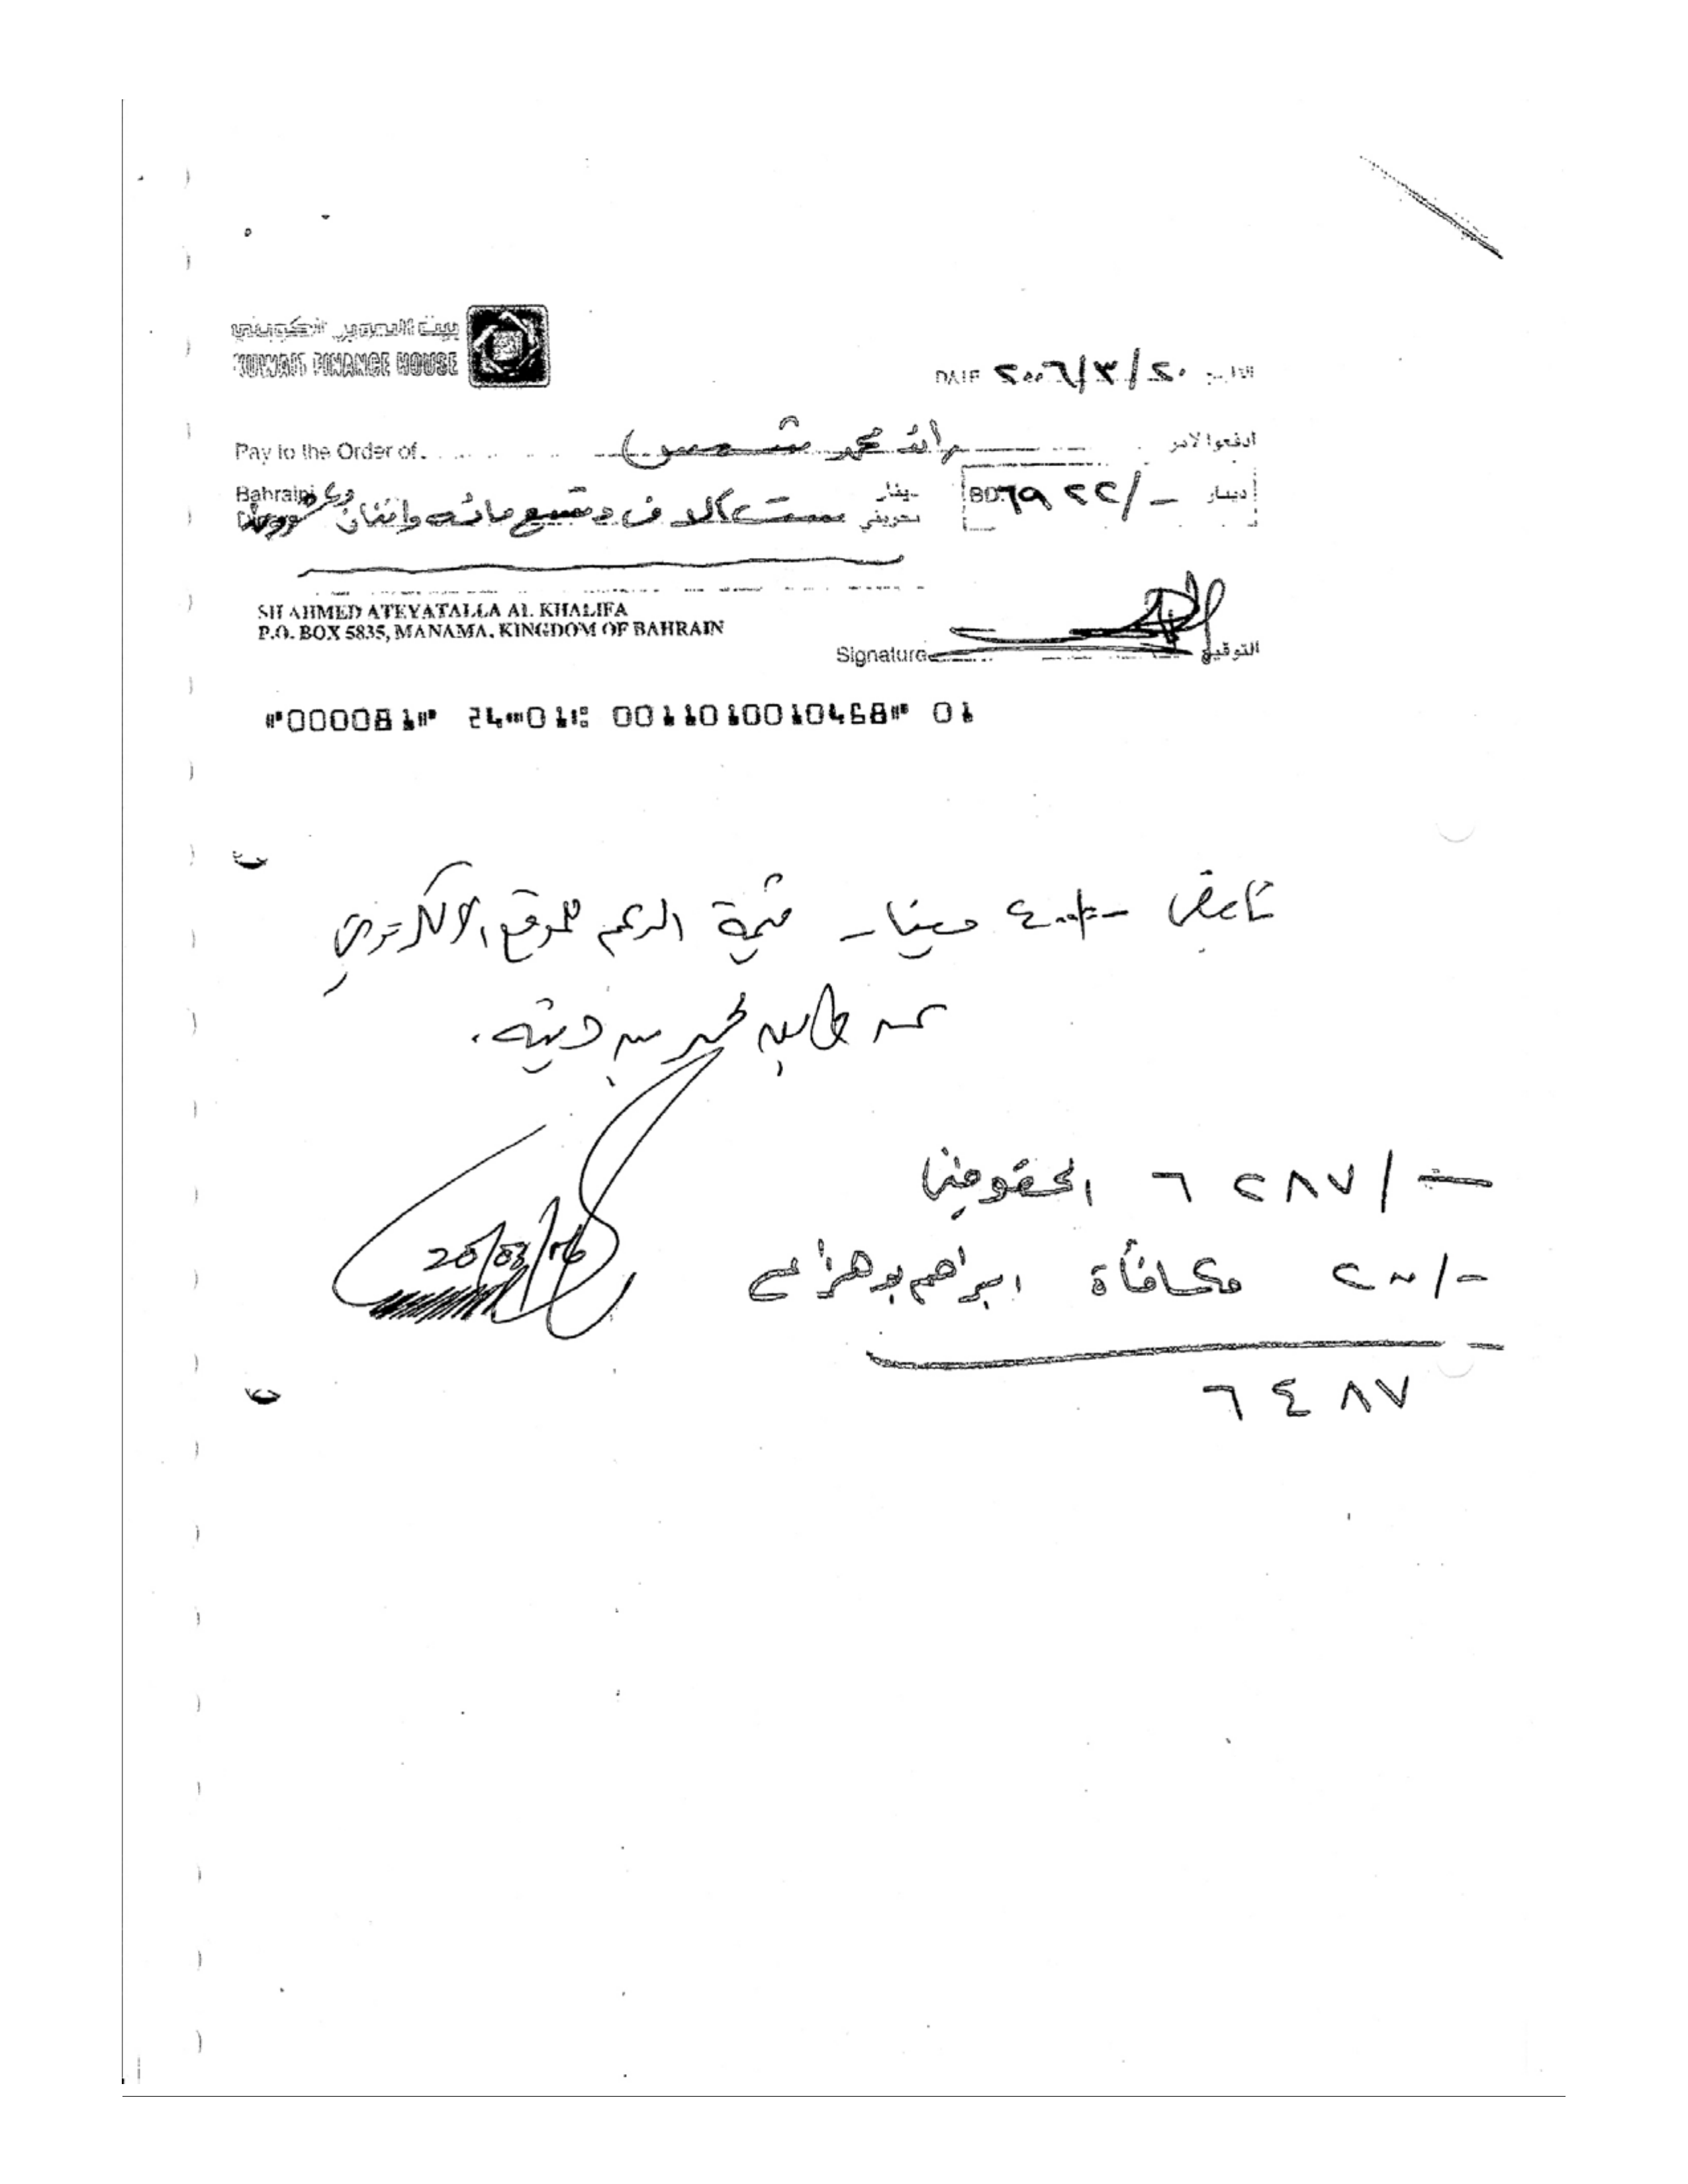 بيت التمويل الكويتي
KUWAIT FINANCE HOUSE
DATE ٢٠٠٦/٣/٢٠ التاريخ
Pay to the Order of رائد محمد شمس ادفعوا لامر
Bahraini Dinars ست آلاف وتسع مائه واثنان دينار بحريني
BD. ٦٩٢٢/- دينار
SH AHMED ATEYATALLA AL KHALIFA
P.O. BOX 5835, MANAMA, KINGDOM OF BAHRAIN
Signature التوقيع
⑈000081⑈ 24⑉01⑆ 0011010010468⑈ 01
دينار قيمة الدعم للموقع الالكتروني
٦٢٨٧/- الحقوقيين
٢٠٠/- مكافأة ابراهيم بوهزاع
٦٤٨٧